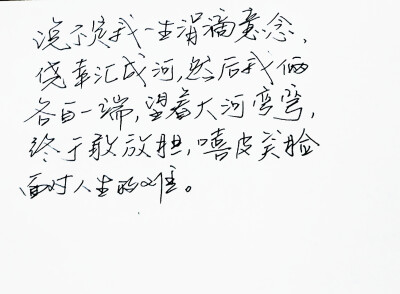 说不定我一生涓滴意念,
侥幸汇成河,然后我俩
各自一端,望着大河弯弯,
终于敢放胆,嘻皮笑脸
面对人生的难。